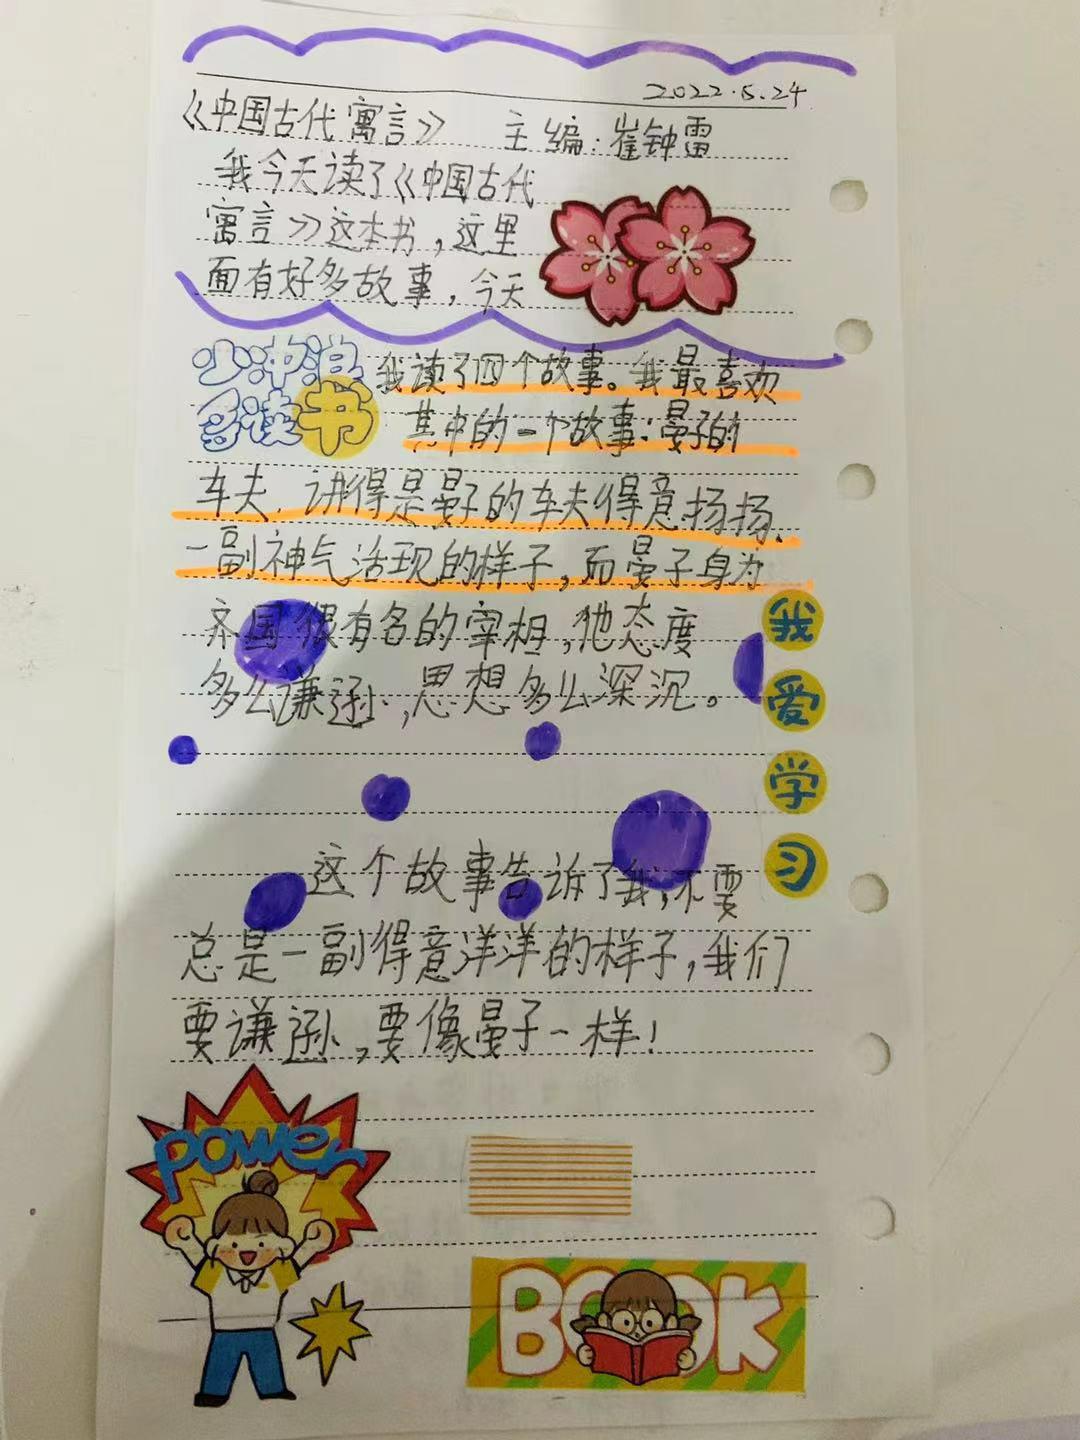 2022.5.24
《中国古代寓言》 主编:崔钟雷
我今天读了《中国古代
寓言》这本书,这里
面有好多故事,今天
少冲浪
多读书
我读了四个故事。我最喜欢
其中的一个故事:晏子的
车夫.讲得是晏子的车夫得意扬扬.
一副神气活现的样子,而晏子身为
齐国很有名的宰相,他态度
多么谦逊,思想多么深沉。
我爱学习
这个故事告诉了我,不要
总是一副得意洋洋的样子,我们
要谦逊,要像晏子一样!
power
BOOK